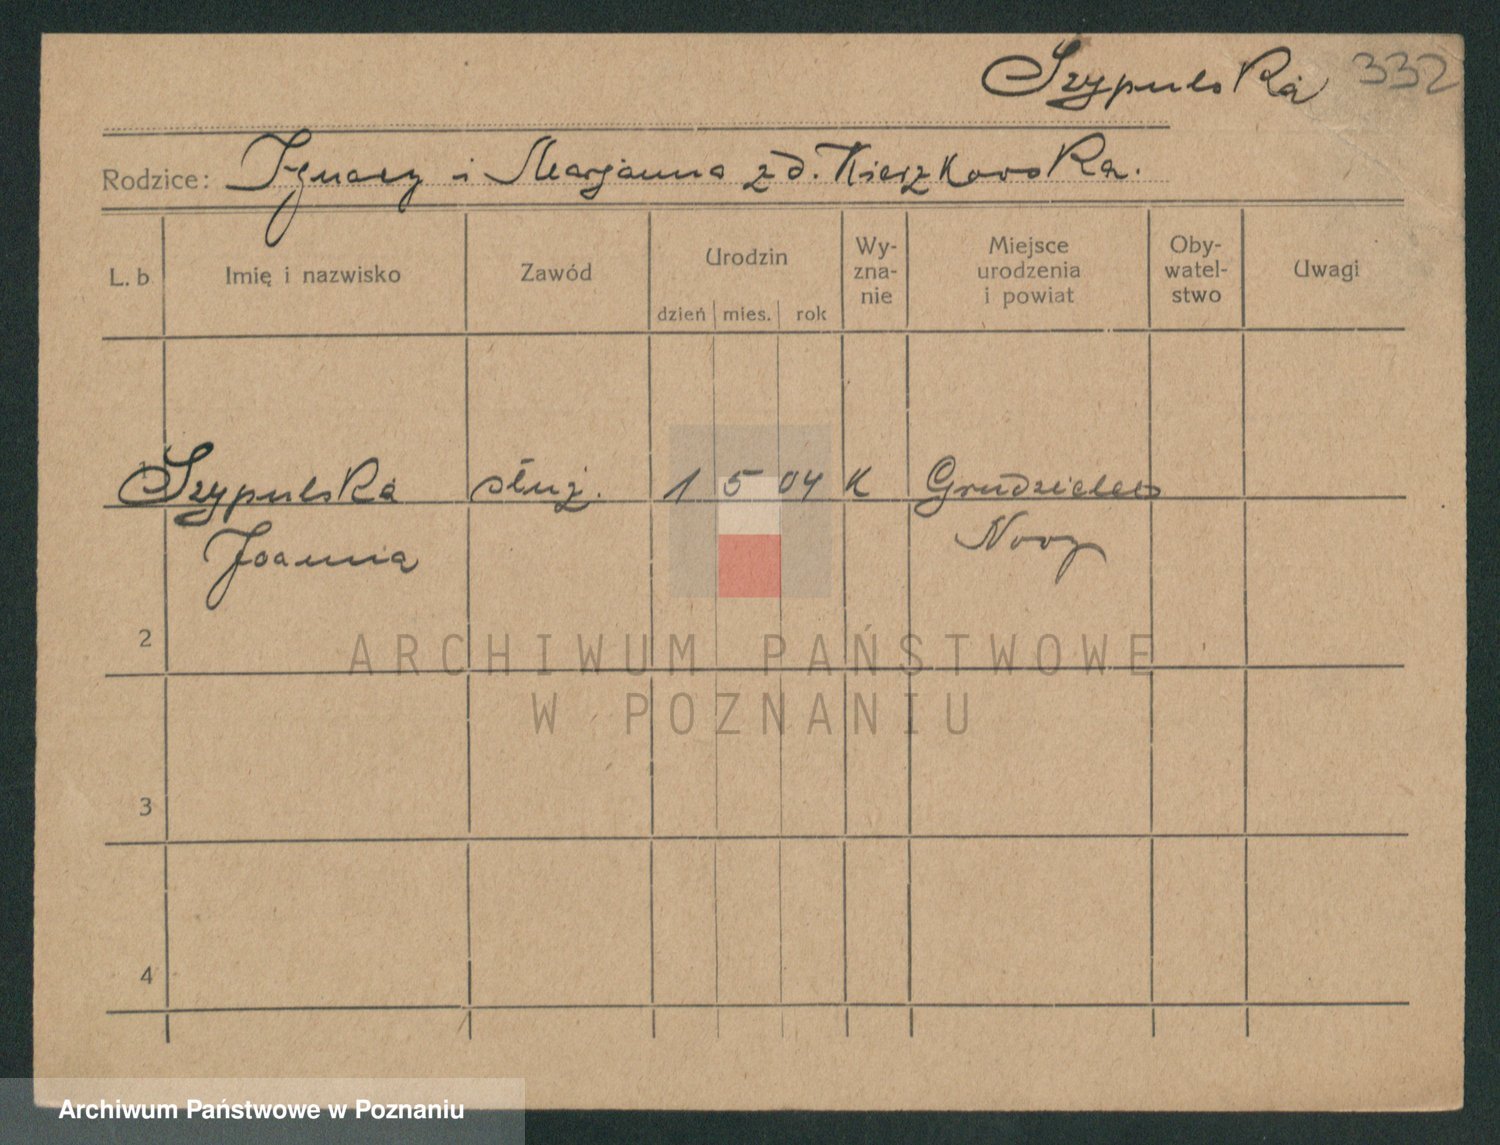 Szypulska 332
Rodzice: Ignacy i Marjanna zd. Kierzkowska.
L. b Imię i nazwisko Zawód Urodzin Wy-zna-nie Miejsce urodzenia i powiat Oby-watel-stwo Uwagi
dzień mies. rok
1 Szypulska służ. 1 5 04 K Grudzielec
Joanna Nowy
2
ARCHIWUM PAŃSTWOWE
W POZNANIU
3
4
Archiwum Państwowe w Poznaniu